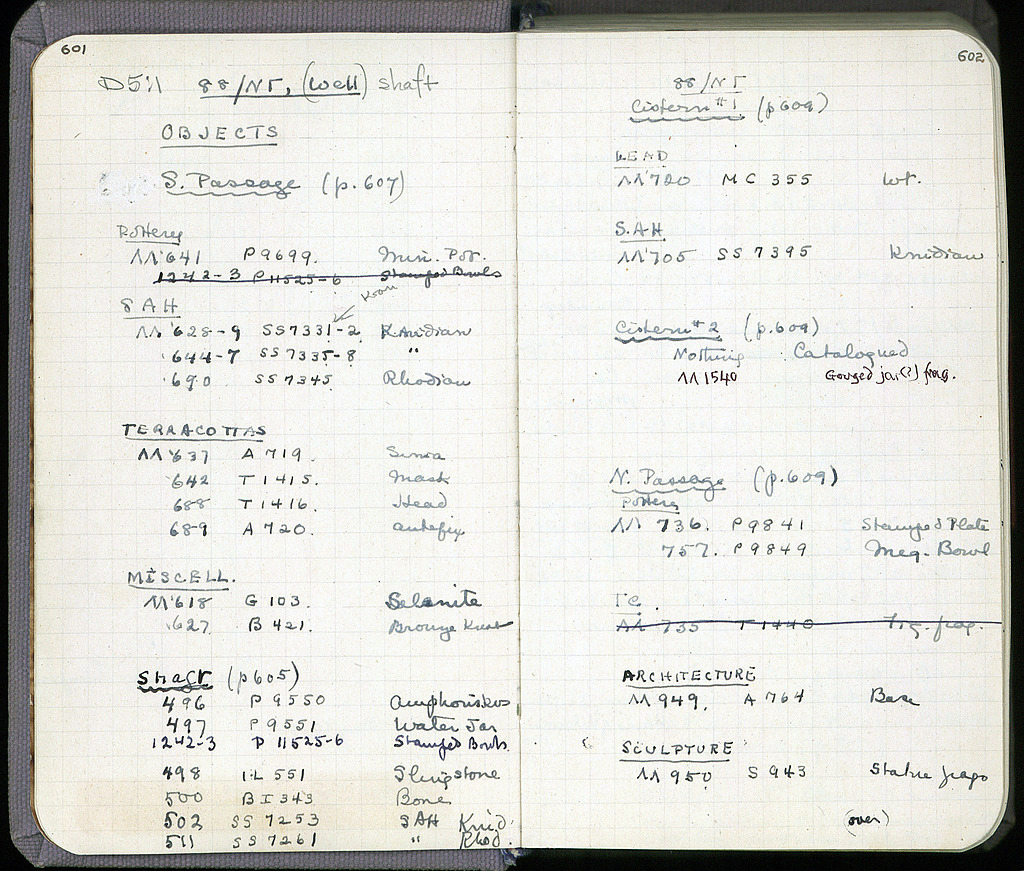 601
D5:1 88/NT, (well) shaft
OBJECTS
S. Passage (p. 607)
Pottery
ΛΛ'641 P 9699. Min. Pot.
1242-3 P 11525-6 Stamped Bowls
SAH
ΛΛ '628-9 SS 7331-2 Knidian
'644-7 SS 7335-8 "
'690 SS 7345 Rhodian
TERRACOTTAS
ΛΛ'637 A 719. Sima
'642 T 1415. Mask
688 T 1416. Head
689 A 720. antefix
MISCELL.
ΛΛ'618 G 103. Selenite
'627 B 421. Bronze
Shaft (p605)
496 P 9550 Amphoriskos
497 P 9551 Water Jar
1242-3 P 11525-6 Stamped Bowls
498 IL 551 Slingstone
500 BI 343 Bone
502 SS 7253 SAH Knid.
511 SS 7261 " Rhod.
602
88/NT
Cistern #1 (p 609)
LEAD
ΛΛ'720 MC 355 Wt.
SAH
ΛΛ'705 SS 7395 Knidian
Cistern #2 (p. 609)
Nothing Catalogued
ΛΛ 1540 Gouged jar(?) frag.
N. Passage (p. 609)
Pottery
ΛΛ 736. P 9841 Stamped Plate
757. P 9849 Meg. Bowl
TC.
ΛΛ 735 T 1440 Fig. frag.
ARCHITECTURE
ΛΛ 949. A 764 Base
SCULPTURE
ΛΛ 950 S 943 Statue frags
(over)